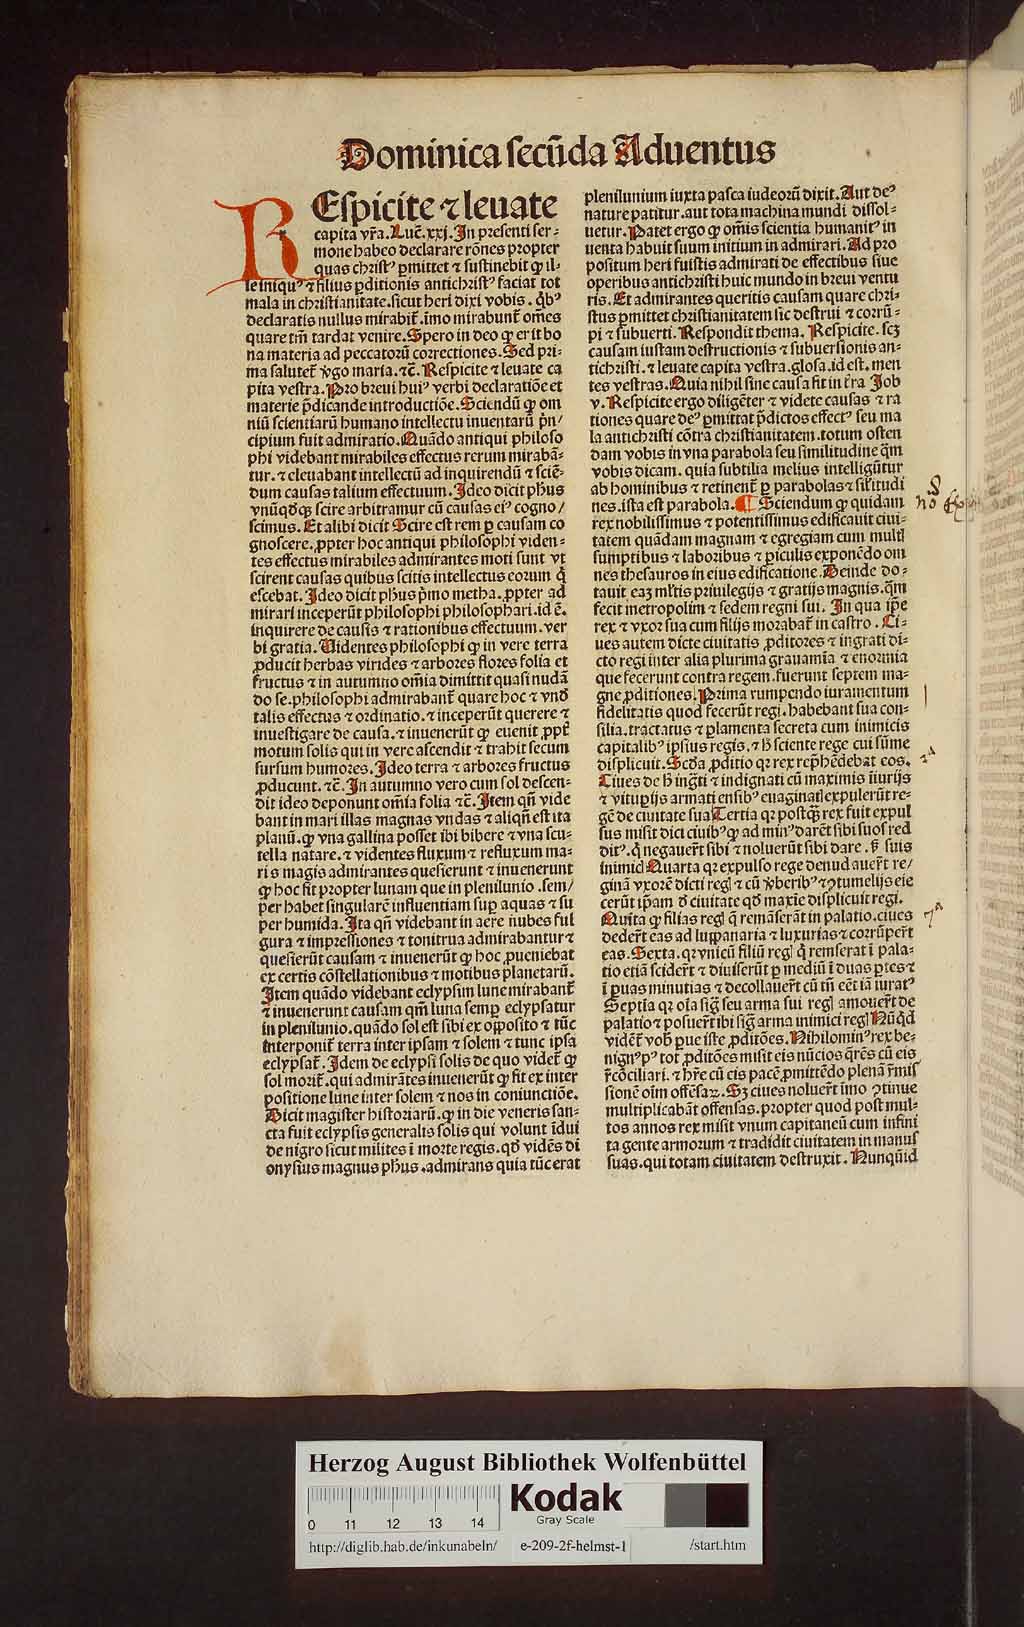 Dominica secūda Aduentus
REspicite ⁊ leuate
capita vr̄a. Luc̄. xxj. In presenti ser⸗
mone habeo declarare rōnes propter
quas christꝰ ꝑmittet ⁊ sustinebit ꝙ il⸗
le iniquꝰ ⁊ filius ꝑditionis antichristꝰ faciat tot
mala in christianitate. sicut heri dixi vobis. q̇bꝰ
declaratis nullus mirabit̃. imo mirabunt̃ om̄es
quare tm̄ tardat venire. Spero in deo ꝙ erit bo
na materia ad peccatorū correctiones. Sed pri⸗
ma salutet̃ v̓go maria. ⁊c̄. Respicite ⁊ leuate ca
pita vestra. Pro breui huiꝰ verbi declaratiōe et
materie p̄dicande introductiōe. Sciendū ꝙ om
niū scientiarū humano intellectu inuentarū p̓n/
cipium fuit admiratio. Quādo antiqui philoso
phi videbant mirabiles effectus rerum mirabā⸗
tur. ⁊ eleuabant intellectū ad inquirendū ⁊ sciē⸗
dum causas talium effectuum. Ideo dicit ph̄us
vnūqd̓qꝫ scire arbitramur cū causas eiꝰ cogno/
scimus. Et alibi dicit Scire est rem ꝑ causam co
gnoscere. ꝓpter hoc antiqui philosophi viden⸗
tes effectus mirabiles admirantes moti sunt vt
scirent causas quibus scitis intellectus eorum q̇
escebat. Ideo dicit ph̄us p̓mo metha. ꝓpter ad
mirari inceperūt philosophi philosophari. id ē.
inquirere de causis ⁊ rationibus effectuum. ver
bi gratia. Uidentes philosophi ꝙ in vere terra
ꝓducit herbas virides ⁊ arbores flores folia et
fructus ⁊ in autumno om̄ia dimittit quasi nudā
do se. philosophi admirabant̃ quare hoc ⁊ vnd̓
talis effectus ⁊ ordinatio. ⁊ inceperūt querere ⁊
inuestigare de causa. ⁊ inuenerūt ꝙ euenit ꝓpt̃
motum solis qui in vere ascendit ⁊ trahit secum
sursum humores. Ideo terra ⁊ arbores fructus
ꝓducunt. ⁊c̄. In autumno vero cum sol descen⸗
dit ideo deponunt om̄ia folia ⁊c̄. Item qn̄ vide
bant in mari illas magnas vndas ⁊ aliqn̄ est ita
planū. ꝙ vna gallina posset ibi bibere ⁊ vna scu⸗
tella natare. ⁊ videntes fluxum ⁊ refluxum ma⸗
ris magis admirantes quesierunt ⁊ inuenerunt
ꝙ hoc fit propter lunam que in plenilunio. sem/
per habet singularē influentiam suꝑ aquas ⁊ su
per humida. Ita qn̄ videbant in aere nubes ful
gura ⁊ impressiones ⁊ tonitrua admirabantur ⁊
quesierūt causam ⁊ inuenerūt ꝙ hoc ꝓueniebat
ex certis cōstellationibus ⁊ motibus planetarū.
Item quādo videbant eclypsim lune mirabant̃
⁊ inuenerunt causam qm̄ luna semꝑ eclypsatur
in plenilunio. quādo sol est sibi ex opposito ⁊ tūc
interponit̃ terra inter ipsam ⁊ solem ⁊ tunc ipsa
eclypsat̃. Idem de eclypsi solis de quo videt̃ ꝙ
sol morit̃. qui admirātes inuenerūt ꝙ fit ex inter
positione lune inter solem ⁊ nos in coniunctiōe.
Dicit magister historiarū. ꝙ in die veneris san⸗
cta fuit eclypsis generalis solis qui volunt īdui
de nigro sicut milites ī morte regis. qd̓ vidēs di
onysius magnus ph̄us. admirans quia tūc erat
plenilunium iuxta pasca iudeorū dixit. Aut deꝰ
nature patitur. aut tota machina mundi dissol⸗
uetur. Patet ergo ꝙ om̄is scientia humanitꝰ in
uenta habuit suum initium in admirari. Ad pro
positum heri fuistis admirati de effectibus siue
operibus antichristi huic mundo in breui ventu
ris. Et admirantes queritis causam quare chri⸗
stus ꝑmittet christianitatem sic destrui ⁊ corrū⸗
pi ⁊ subuerti. Respondit thema. Respicite. scꝫ
causam iustam destructionis ⁊ subuersionis an⸗
tichristi. ⁊ leuate capita vestra. glosa. id est. men
tes vestras. Quia nihil sine causa fit in t̃ra Job
v. Respicite ergo diligēter ⁊ videte causas ⁊ ra
tiones quare deꝰ ꝑmittat p̄dictos effectꝰ seu ma
la antichristi cōtra christianitatem. totum osten
dam vobis in vna parabola seu similitudine qm̄
vobis dicam. quia subtilia melius intelligūtur
ab hominibus ⁊ retinent̃ ꝑ parabolas ⁊ sil̓itudi
nes. ista est parabola. ¶ Sciendum ꝙ quidam
rex nobilissimus ⁊ potentissimus edificauit ciui⸗
tatem quādam magnam ⁊ egregiam cum multi
sumptibus ⁊ laboribus ⁊ ꝑiculis exponēdo om
nes thesauros in eius edificatione. Deinde do⸗
tauit eaꝫ ml̓tis priuilegijs ⁊ gratijs magnis. qm̄
fecit metropolim ⁊ sedem regni sui. In qua ip̄e
rex ⁊ vxor sua cum filijs morabat̃ in castro. Ci⸗
ues autem dicte ciuitatis ꝓditores ⁊ ingrati di⸗
cto regi inter alia plurima grauamīa ⁊ enormia
que fecerunt contra regem. fuerunt septem ma⸗
gne ꝓditiones. Prima rumpendo iuramentum
fidelitatis quod fecerūt regi. habebant sua con⸗
silia. tractatus ⁊ ꝑlamenta secreta cum inimicis
capitalibꝰ ipsius regis. ⁊ h̓ sciente rege cui sūme
displicuit. Scd̓a ꝓditio qꝛ rex rep̓hēdebat eos.
Ciues de h̓ ing̓ti ⁊ indignati cū maximis iīurijs
⁊ vituꝑijs armati ensibꝰ euaginati expulerūt re⸗
gē de ciuitate sua Tertia qꝛ postqꝫ rex fuit expul
sus misit dici ciuibꝰ ꝙ ad minꝰ darēt sibi suos red
ditꝰ. q̇ negauer̃t sibi ⁊ noluerūt sibi dare. sꝫ suis
inimici Quarta qꝛ expulso rege denudauer̃t re/
ginā vxorē dicti regꝭ ⁊ cū v̓beribꝰ ⁊ ꝯtumelijs eie
cerūt ip̄am d̓ ciuitate qd̓ maxīe displicuit regi.
Quīta ꝙ filias regꝭ q̄ remāserāt in palatio. ciues
deder̃t eas ad lupanaria ⁊ luxurias ⁊ corrūper̃t
eas. Sexta. qꝛ vnicū filiū regꝭ q̇ remserat ī pala⸗
tio etiā scider̃t ⁊ diuiserūt ꝑ mediū ī duas ꝑtes ⁊
ī ꝑuas minutias ⁊ decollauer̃t cū tn̄ eēt iā iuratꝰ
Septīa qꝛ oīa sig̓ seu arma sui regꝭ amouer̃t de
palatio ⁊ posuer̃t ibi sig̓ arma inimici regꝭ Nūq̇d
vidēt̃ vob̓ ꝑue iste ꝓditōes. Nihilominꝰ rex be⸗
nignꝰ pꝰ tot ꝓditōes misit eis nūcios q̄rēs cū eis
rc̄ōciliari. ⁊ hr̄e cū eis pacē ꝓmittēdo plenā r̃mis
sionē oīm offēsaꝝ. Sꝫ ciues noluer̃t imo ꝯtinue
multiplicabāt offensas. propter quod post mul⸗
tos annos rex misit vnum capitaneū cum infini
ta gente armorum ⁊ tradidit ciuitatem in manus
suas. qui totam ciuitatem destruxit. Nunqūid
2ᵃ
7ᵃ
Herzog August Bibliothek Wolfenbüttel
0 11 12 13 14
Kodak
Gray Scale
http://diglib.hab.de/inkunabeln/ e-209-2f-helmst-1 /start.htm